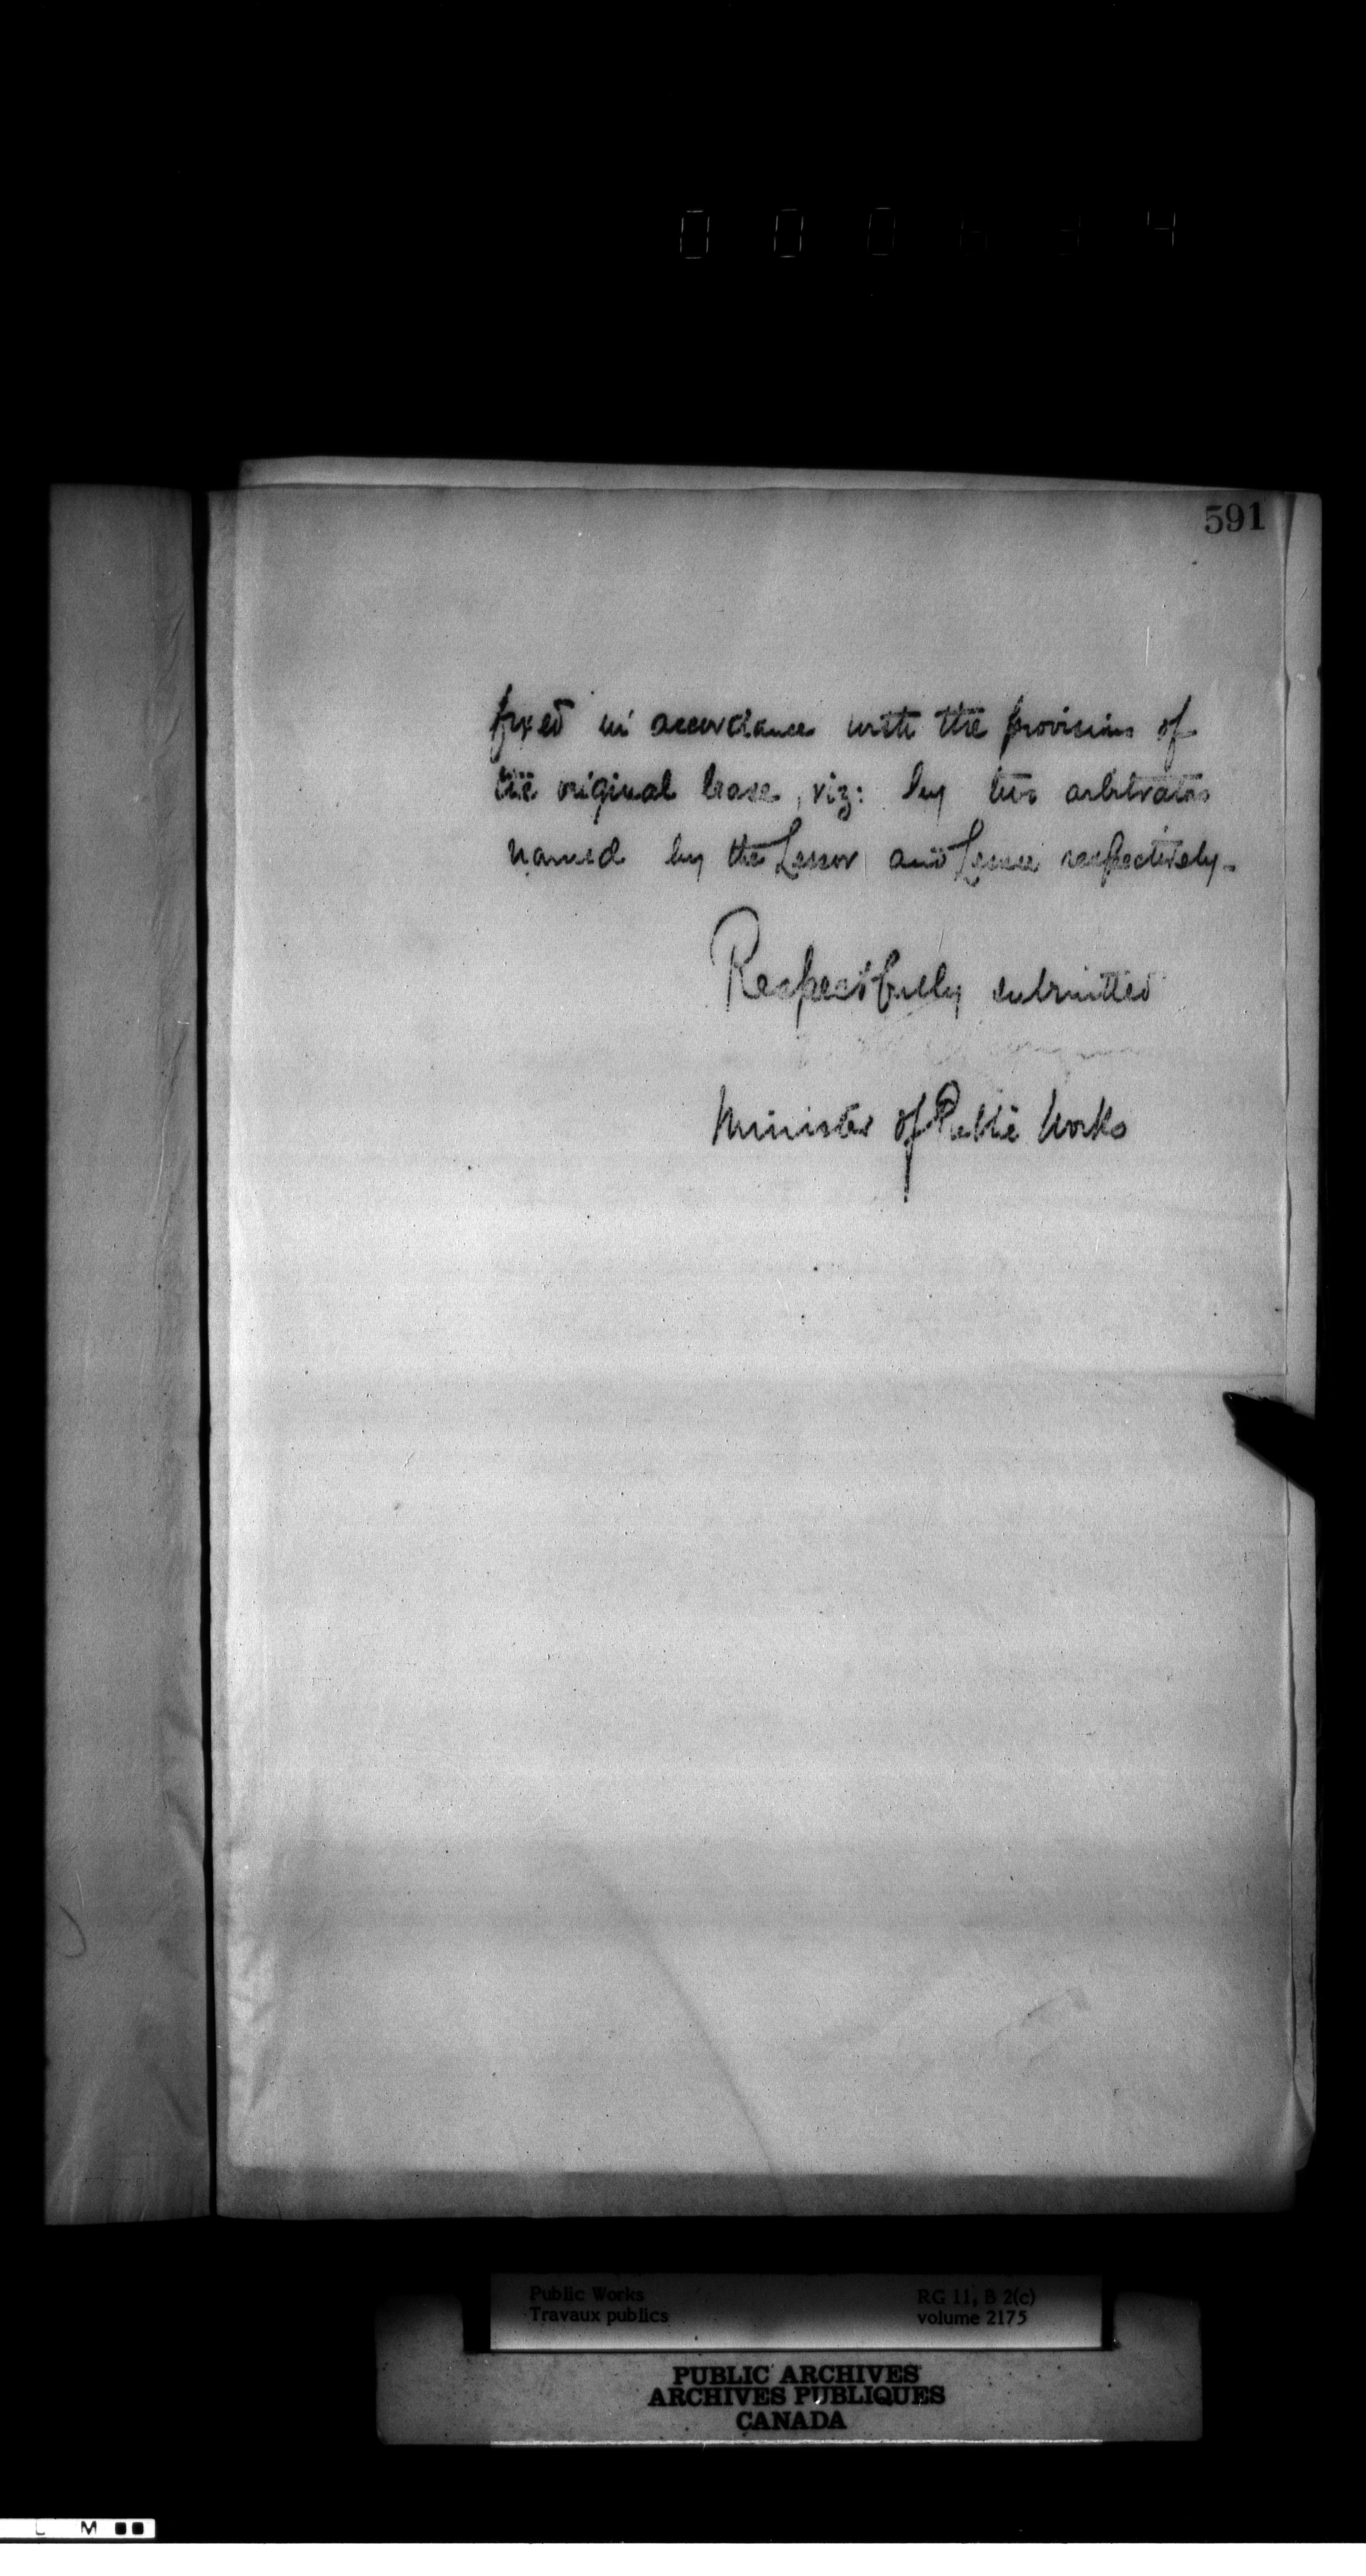 591
fixed in accordance with the provisions of
the original lease, viz: by two arbitrators
named by the Lessor and Lessee respectively.
Respectfully submitted
Minister of Public Works
Public Works
Travaux publics
RG 11, B 2(c)
volume 2175
PUBLIC ARCHIVES
ARCHIVES PUBLIQUES
CANADA